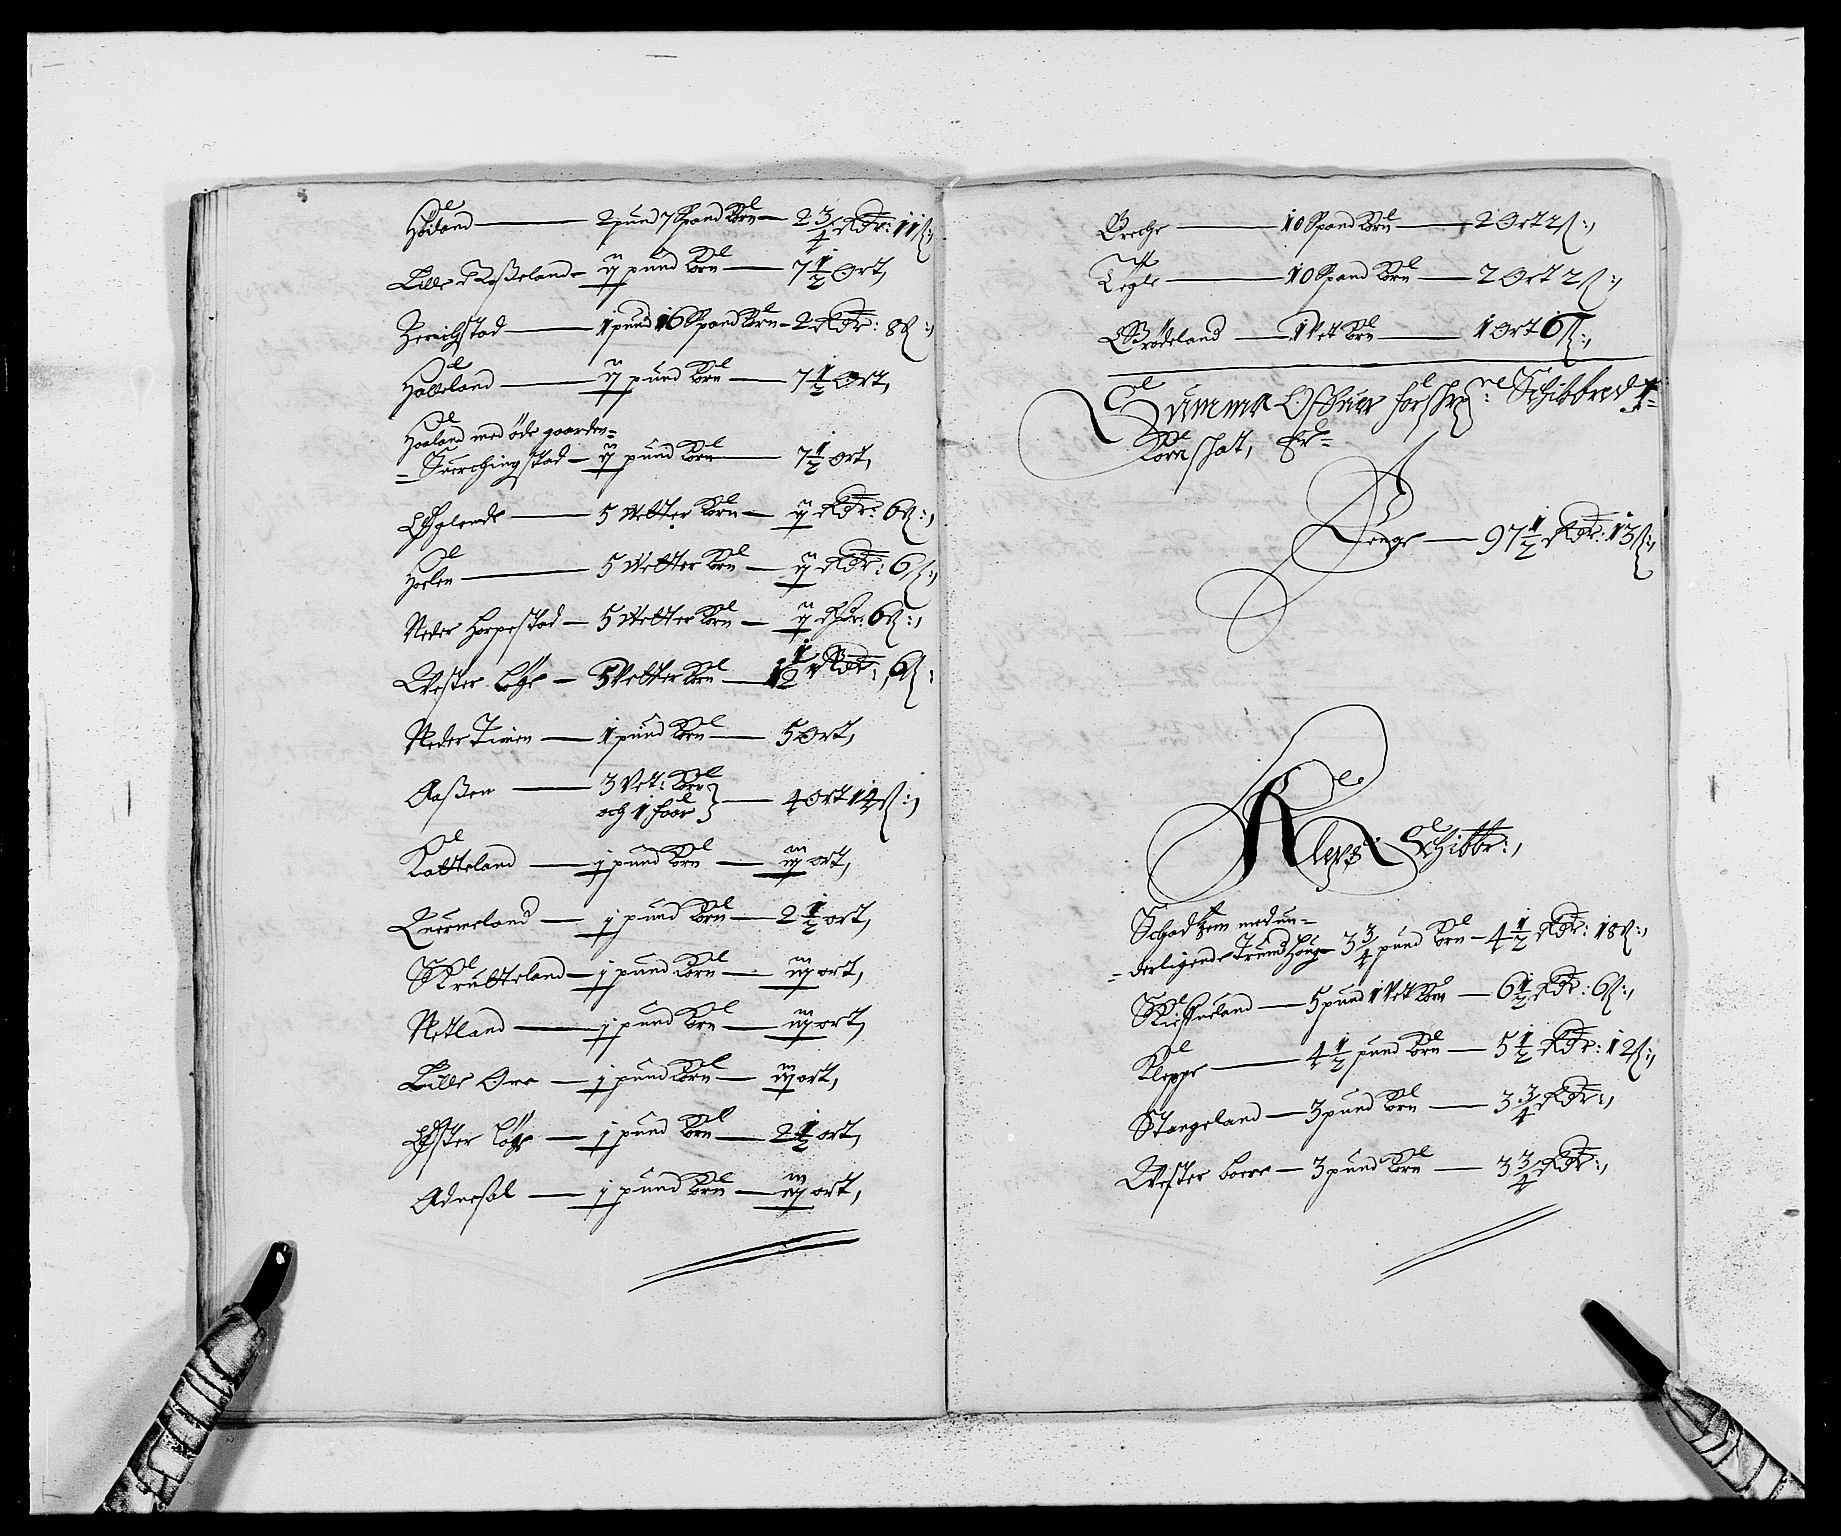 Høiland — 2 pund 7 Spand Korn — 2 3/4 Rdr: 11 ß:,
Lille Roßeland — ij pund Korn — 7 1/2 Ort,
— 1 pund 16 Spand Korn — 2 Rdr: 8 ß:,
Haveland — ij pund Korn — 7 1/2 Ort,
Haaland med øde gaarden=
=Tuerchingstad — ij pund Korn — 7 1/2 ort,
— 5 Vetter Korn — ij Rdr: 6 ß:,
Hoelen — 5 Vetter Korn — ij Rdr: 6 ß:,
Neder Horpestad — 5 Vetter Korn — ij Rdr: 6 ß:,
Wester Løge — 5 Vetter Korn — 1 1/2 Rdr: 6 ß:
Neder Timen — 1 pund Korn — 5 Ort,
Aaßen — 3 Vet: Korn
och 1 foor — 4 Ort 14 ß:,
Katteland — j pund Korn — iij ort,
Quermeland — j pund Korn — 2 1/2 ort,
Skrutteland — j pund Korn — iij ort,
Netland — j pund Korn — iij ort,
Lille Ore — j pund Korn — iij ort,
Øster Løge — j pund Korn — 2 1/2 ort,
Adnesøl — j pund Korn — iij ort,
Breche — 10 Spand Korn — 2 Ort 2 ß:,
Tegle — 10 Spand Korn — 2 Ort 2 ß:,
Brødeland — 1 Vet Korn — 1 Ort 6 ß:,
Summa Ofuer forschr:ne Schibbred=
Korn schat, Er=
Penge — 97 1/2 Rdr: 13 ß:,
Kleps Schibbr:,
med un=
=derligende Trundhoug — 3 3/4 pund Korn — 4 1/2 Rdr: 18 ß:,
— 5 pund 1 Vet Korn — 6 1/2 Rdr: 6 ß:,
Kleppe — 4 1/2 pund Korn — 5 1/2 Rdr: 12 ß:,
Stangeland — 3 pund Korn — 3 3/4 Rdr:,
Wester Boere — 3 pund Korn — 3 3/4 Rdr:,